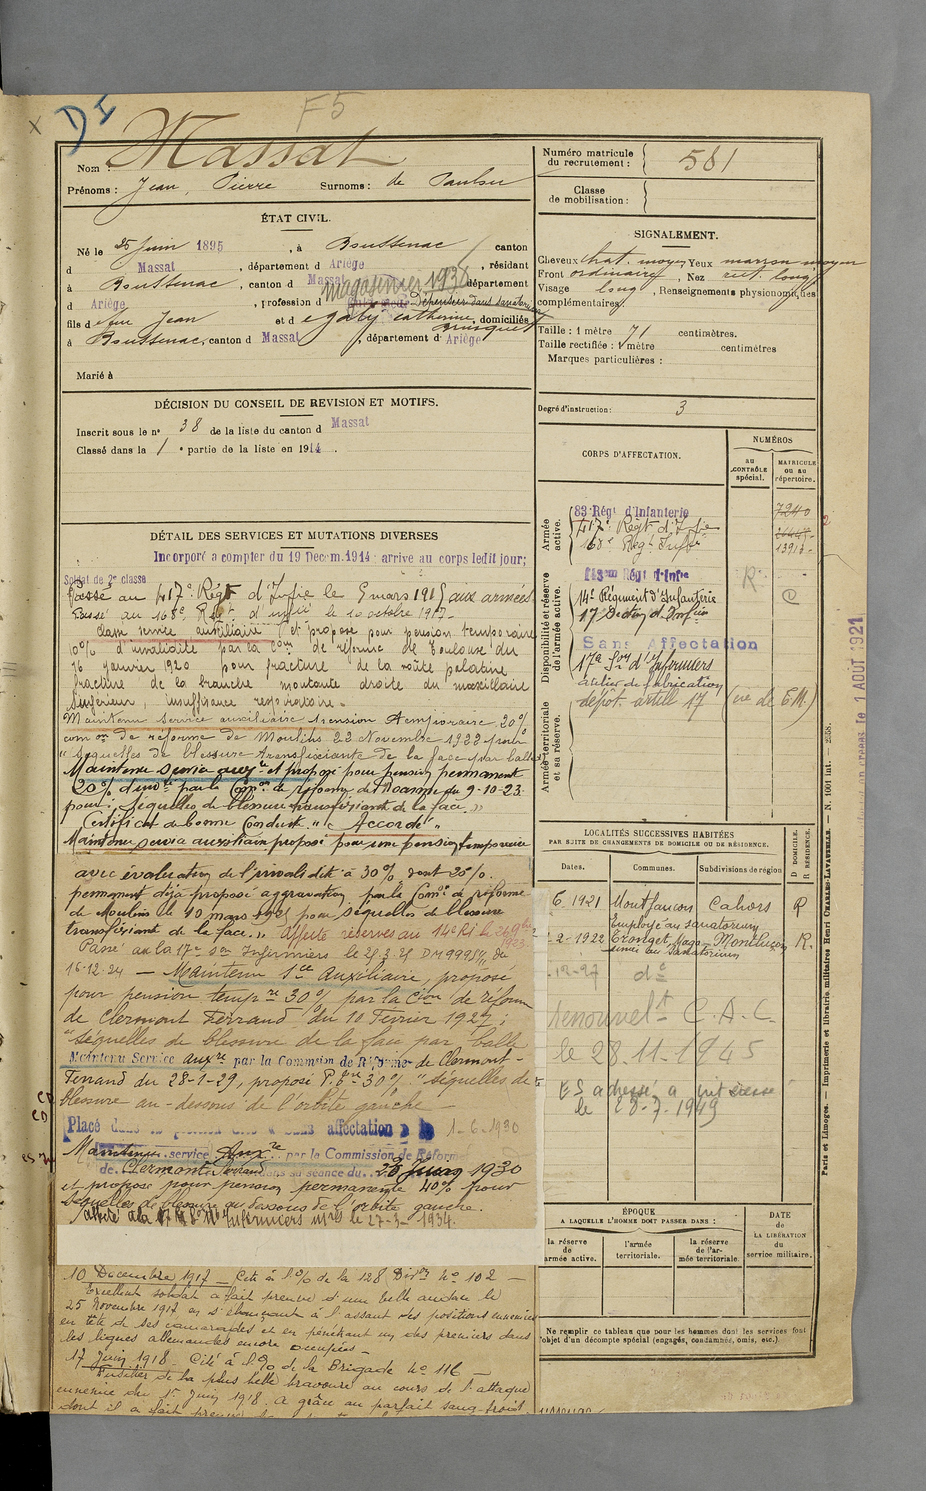 D I
F5
x
Nom : Massat
Prénoms : Jean, Pierre Surnoms : de
ÉTAT CIVIL.
Né le 25 Juin 1895, à Boussenac canton
d Massat, département d Ariège, résidant
à Boussenac, canton d Massat
magasinier 1930
d Ariège, profession d Dépensier dans sanatorium
fils d feu Jean et d Egaly Catherine, domiciliés
à Boussenac, canton d Massat, département d Ariège
Marié à
DÉCISION DU CONSEIL DE REVISION ET MOTIFS.
Inscrit sous le n° 38 de la liste du canton d Massat
Classé dans la 1 e partie de la liste en 1914.
DÉTAIL DES SERVICES ET MUTATIONS DIVERSES
Incorporé a compter du 19 Decem. 1914 arrive au corps ledit jour;
Soldat de 2e classe
Passé au 417e Régt d'Infie le 9 mars 191 aux armées
Passé au 168e Régt d'Infie le 10 octobre 1917
Classé service auxiliaire et proposé pour pension temporaire
10% d'invalidité par la Com de réforme de Toulouse du
16 janvier 1920 pour fracture de la voûte palatine,
fracture de la branche montante droite du maxillaire
inférieur, insuffisance respiratoire.
Maintenu service auxiliaire pension temporaire 20%
com on de réforme de Moulins 22 Novembre 1922 pour
"Séquelles de blessure transfixiante de la face par balle"
Maintenu service auxre et proposé pour pension permanent
20% d'invté par la Com on de réforme de Roanne du 9-10-23
pour: Séquelles de blessure transfixiante de la face."
Certificat de bonne Conduite "Accordé"
Maintenu service auxiliaire proposé pour une pension temporaire
avec évaluation de l'invalidité à 30% dont 20%
permanent déjà proposé aggravation par la Comon de réforme
de Moulins le 10 mars 1925 pour séquelles de blessure
transfixiante de la face." Affecté réserves au 14e RI le
Passé au la 17e Son Infirmiers le 25.3.25 DM 9995 du
16-12-24 — Maintenu Sce Auxiliaire proposé
pour pension tempre 30% par la Cion de réforme
de Clermont Ferrand du 10 Fevrier 1927;
"séquelles de blessure de la face par balle
Maintenu Service auxre par la Commsion de Réforme de Clermont-
Ferrand du 28-1-29, proposé P. 30% "séquelles de
blessure au-dessous de l'orbite gauche —
Placé dans la position dite "Sans affectation" 1-6-1930
Maintenu service Auxre par la Commission de Réforme
de Clermont Ferrand dans sa séance du 26 Juin 1930
et proposé pour pension permanente 40% pour
séquelles de blessure au dessous de l'orbite gauche.
Affecté à la 17e Son Infirmiers le 27-3-1934.
10 Décembre 1917 — Cité à l'O/ de la 128 Divon No 102 —
Excellent soldat a fait preuve d'une belle audace le
25 Novembre 1917 en s'élançant à l'assaut des positions ennemies
en tête de ses camarades et en pénétrant un des premiers dans
les lignes allemandes encore occupées —
17 Juin 1918 — Cité à l'O/ de la Brigade No 116 —
Fusilier de la plus belle bravoure au cours de l'attaque
ennemie du 1er Juin 1918. A grâce au parfait sang-froid
dont il a fait preuve
Numéro matricule du recrutement : 581
Classe de mobilisation :
SIGNALEMENT.
Cheveux chat. moyen Yeux marron moyen
Front ordinaire, Nez rect. long
Visage long, Renseignements physionomiques
complémentaires:
Taille : 1 mètre 71 centimètres.
Taille rectifiée : 1 mètre centimètres
Marques particulières :
Degré d'instruction : 3
CORPS D'AFFECTATION.
NUMÉROS
AU CONTRÔLE spécial.
MATRICULE OU AU répertoire.
Armée active.
83 Régt d'Infanterie 7240
417e Régt d'Infie
168e Régt Infie
Disponibilité et réserve de l'armée active.
143em Régt d'Infie R C
14e Régiment d'Infanterie
17e Section d'Infirs
Sans Affectation
17e Son d'Infirmiers
atelier de fabrication
dépôt artill 17 (vie de E.M.)
Armée territoriale et sa réserve.
LOCALITÉS SUCCESSIVES HABITÉES
PAR SUITE DE CHANGEMENTS DE DOMICILE OU DE RÉSIDENCE.
Dates. Communes. Subdivisions de région
D DOMICILE. R RÉSIDENCE.
6. 1921 Montfaucon Cahors R
Employé au Sanatorium
-2-1922 Maga- Montluçon R.
sinier au Sanatorium
-12-27 do
Renouvelt C.A.C.
le 28.11-1945
ES adressé a
le 28-7-1949
ÉPOQUE
A LAQUELLE L'HOMME DOIT PASSER DANS :
la réserve de armée active.
l'armée territoriale.
la réserve de l'armée territoriale.
DATE de LA LIBÉRATION du service militaire.
Ne remplir ce tableau que pour les hommes dont les services font
l'objet d'un décompte spécial (engagés, condamnés, omis, etc.)
Paris et Limoges. — Imprimerie et librairie militaires Henri CHARLES-LAVAUZELLE. — N. 1001 int. — 2558.
le 1 AOUT 1921